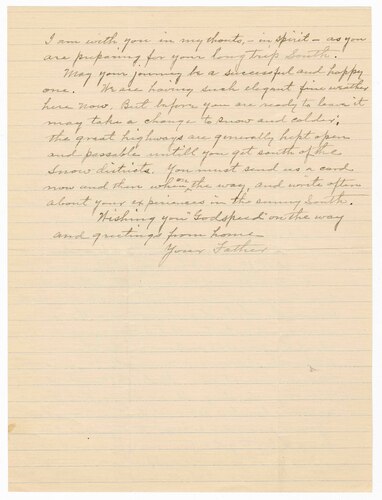 I am with you in my thouts, - in spirit - as you
are preparing for your long trip South.
May your journey be a successful and happy
one. We are having such elegant fine weather
here now. But before you are ready to leave it
may take a change to snow and colder;
the great highways are generally kept open
and passable untill you get south of the
Snow districts. You must send us a card
now and then when on the way, and write often
about your experiences in the sunny South.
Wishing you "Godspeed" on the way
and greetings from home
Your Father